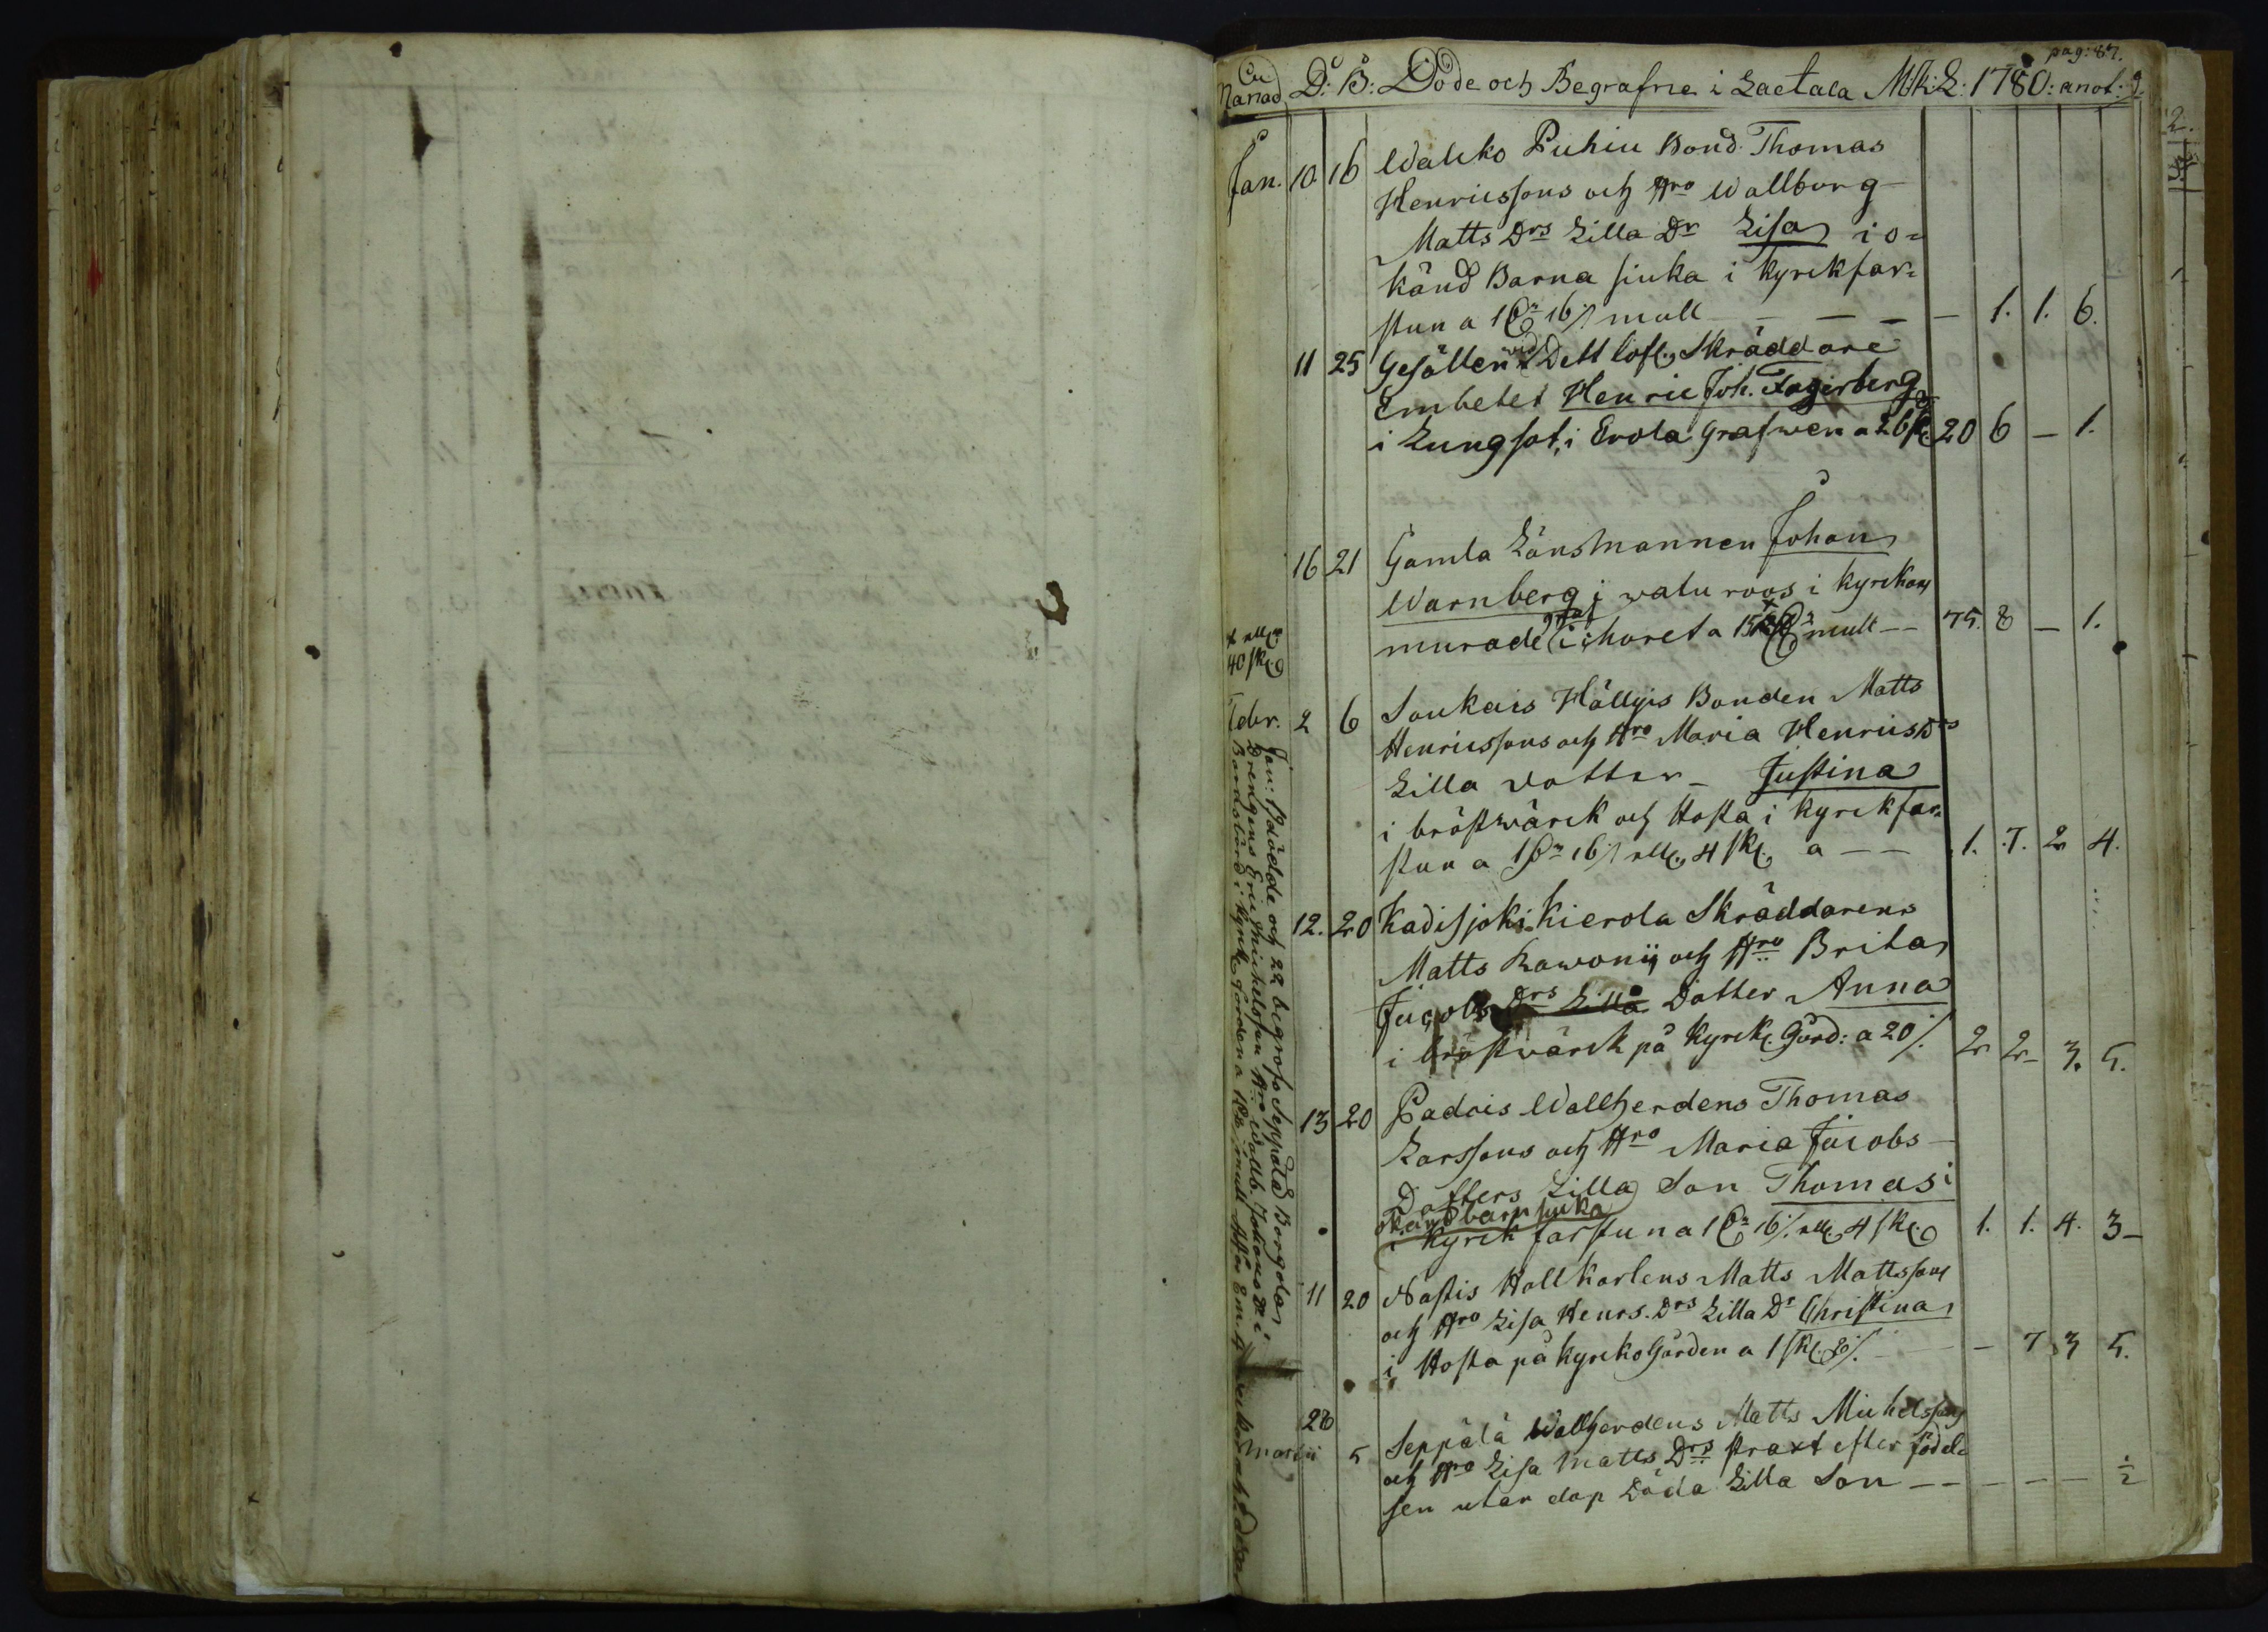 pag: 87.
Månad D: B: Döde och Begrafne i Laetala M.K.L: 1780: anot:
Jan. 10 16 Walcko Puhiu Bond. Thomas
Henricssons och Hro Wallborg
Matts Drs Lilla Dr Lisa i o=
känd Barna siuka i kyrckfar=
stun a 16 mull — — — 1. 1. 6.
11 25 Gesällen wid Dett Lofl. Skräddare
Embetet Henric Joh. Fagerberg
i Lungsot, i Erola grafwen a 26 sk. 20 6 — 1.
16 21 Gamla Länsmannen Johan
Warnberg i watu roos i kyrckans
murade graf i choret a mull — 75. 8 — 1.
40 sk.
Febr. 2 6 Soukais Hällyis Bonden Matts
Henricssons och Hro Maria Henrics Drs
Lilla dotter — Justina
i bröstwärck och Hosta i kyrckfar=
stun a 16 4 sk. a — — 1. 7. 2 4.
12. 20 Kadisjoki Kierola Skräddarens
Matts Kawonij och Hro Brita
Jacobs Drs Lilla Dotter Anna
i bröstwärck på Kyrck. Gård: a 20 2 2 3. 5.
13 20 Padois Wallherdens Thomas
Larssons och Hro Maria Jacobs
Dotters Lilla Son Thomas i
okänd barn siuka
i kyrck farstun a 16 4 sk. 1. 1. 4. 3
11 20 Nästis Hallkarlens Matts Mattssons
och Hro Lisa Henrs. Drs Lilla Dr Christina
i Hosta på kyrckogården a 1 sk. — 7 3 5.
28
Martii 5 Seppälä Wallherdens Matts Michelssons
och Hro Lisa Matts Drs straxt efter födel=
sen utan dop Döda Lilla Son — — — — ½
Jan: dödde och 22 begrofs Seppälä Borgolas
Drengens Eric Michelsson Hro Wallb. Johans Dr i
Barnsbörd i kyrck. Gården a mull